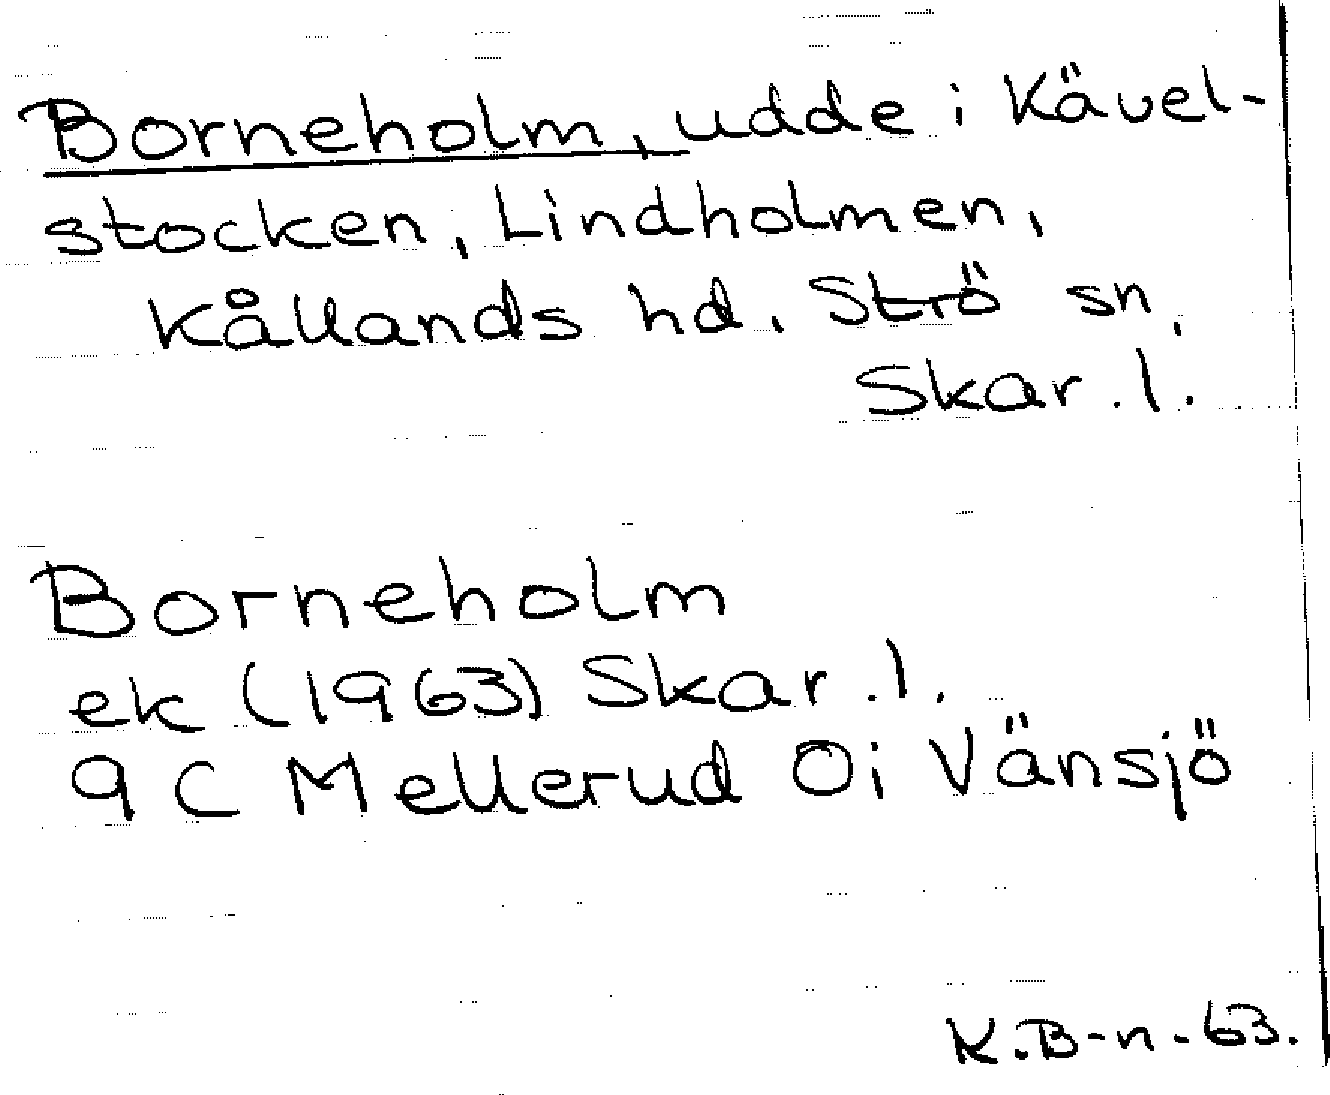 Borneholm, udde i Kävel-
stocken, Lindholmen,
Kållands hd. Strö sn,
Skar. l.
Borneholm
ek (1963) Skar. l.
9 C Mellerud Öi Vänsjö
K.B-n-63.